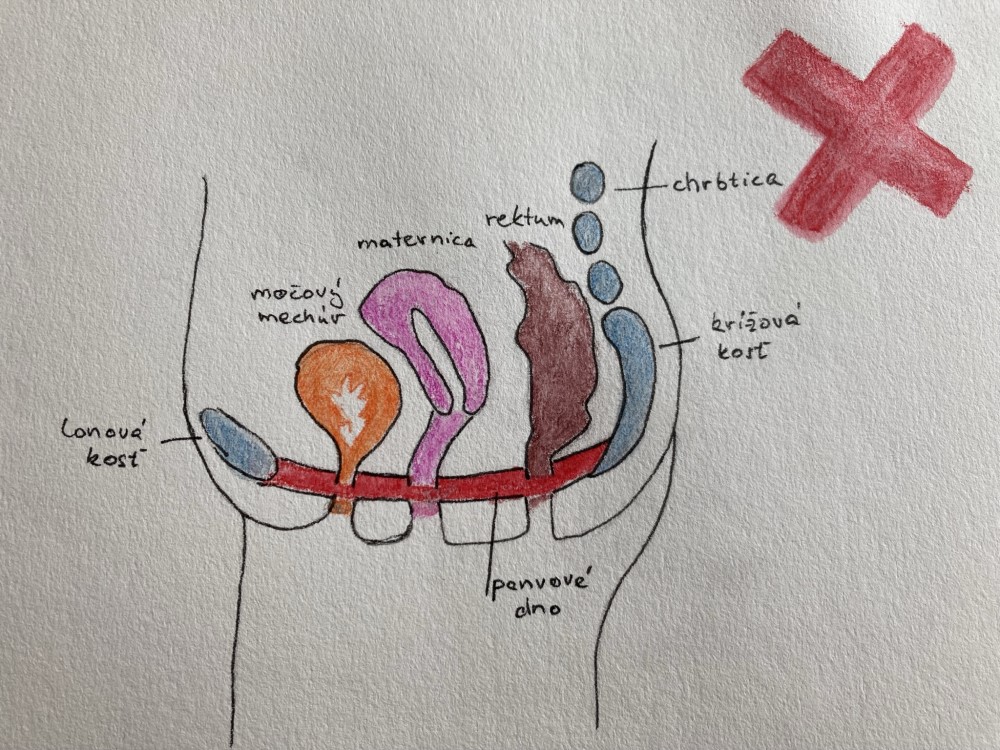 chrbtica
rektum
maternica
močový
mechúr
krížová
kosť
lonová
kosť
panvové
dno